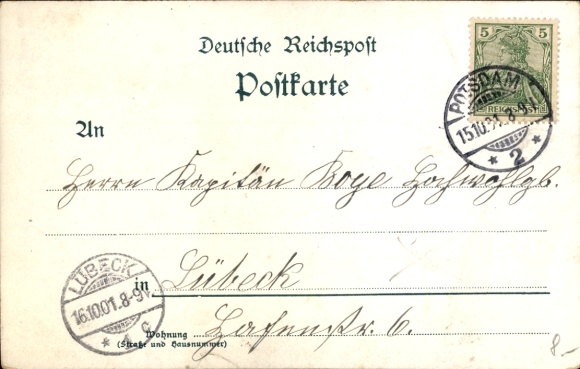 Deutsche Reichspost
Postkarte
5 5
REICHSPOST
POTSDAM
15.10.01. 8-9N
* 2 *
An
Herrn Kapitän Boye Hochwohlgb.
LÜBECK
16.10.01. 8-9V
* c
in Lübeck
Wohnung Hafenstr. 6.
(Straße und Hausnummer)
8.-